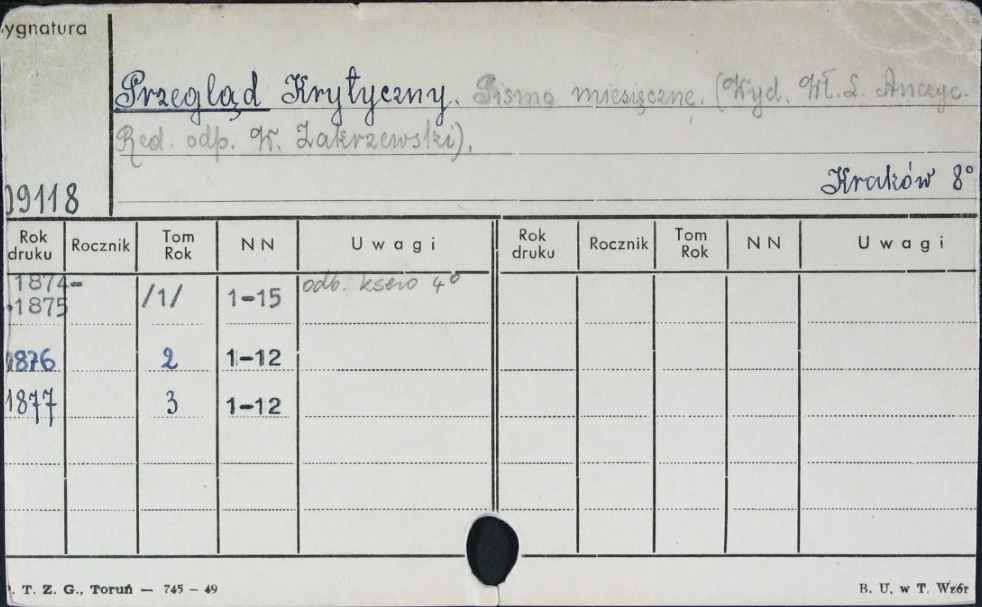 ygnatura
Przegląd Krytyczny. Pismo miesięczne. (Wyd. Wł. L. Anczyc.
Red. odp. W. Zakrzewski).
Kraków 8°
09118
Rok druku Rocznik Tom Rok NN Uwagi Rok druku Rocznik Tom Rok NN Uwagi
1874-
1875 /1/ 1-15 odb. ksero 4°
1876 2 1-12
1877 3 1-12
. T. Z. G., Toruń — 745 – 49 B. U. w T. Wzór